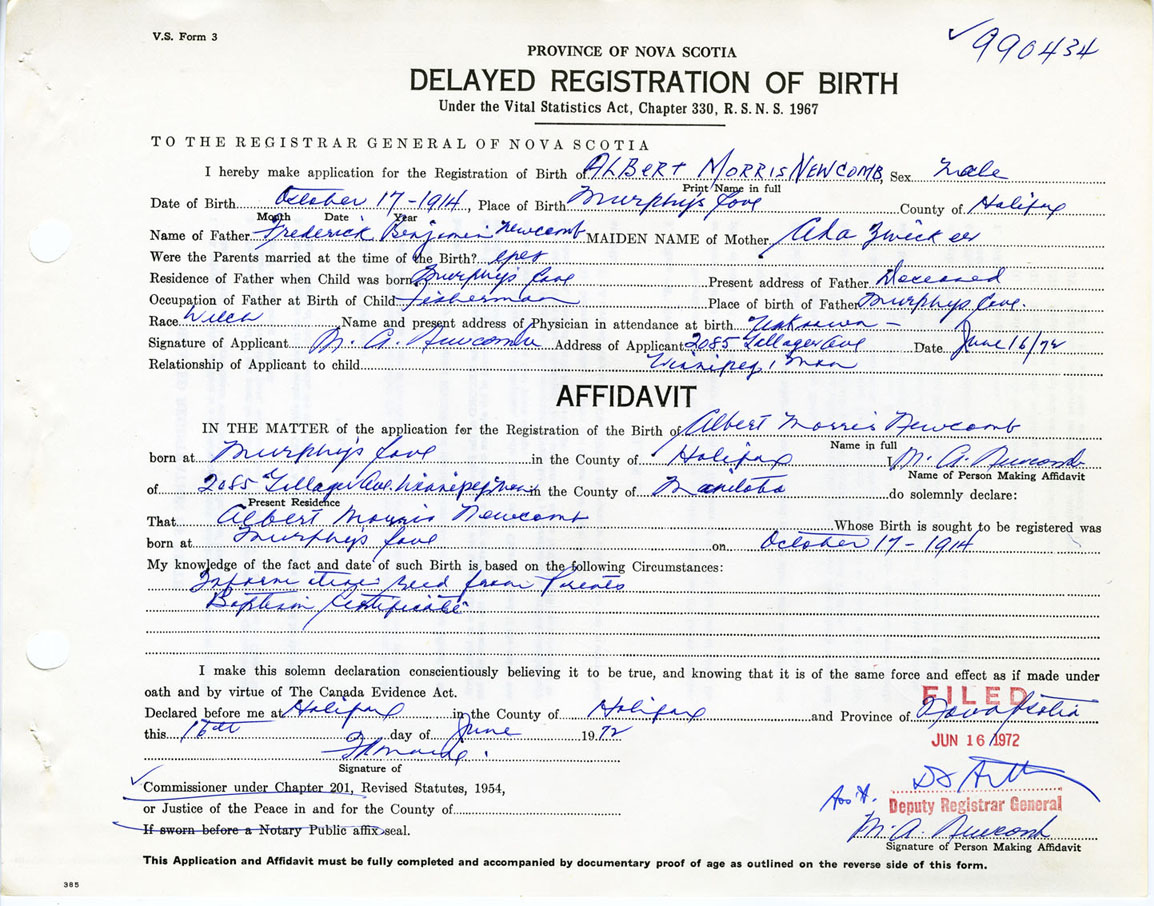 V.S. Form 3
990434
PROVINCE OF NOVA SCOTIA
DELAYED REGISTRATION OF BIRTH
Under the Vital Statistics Act, Chapter 330, R.S.N.S. 1967
TO THE REGISTRAR GENERAL OF NOVA SCOTIA
I hereby make application for the Registration of Birth of ALBERT MORRIS NEWCOMB, Sex Male
Print Name in full
Date of Birth October 17-1914, Place of Birth Murphy's Cove County of Halifax
Month Date Year
Name of Father Frederick Benjamin Newcomb MAIDEN NAME of Mother Ada Zwicker
Were the Parents married at the time of the Birth? yes
Residence of Father when Child was born Murphy's Cove Present address of Father Deceased
Occupation of Father at Birth of Child Fisherman Place of birth of Father Murphys Cove.
Race Welch Name and present address of Physician in attendance at birth Unknown -
Signature of Applicant M. A. Newcomb Address of Applicant 2085 Gallagher Ave Date June 16/72
Relationship of Applicant to child Winnipeg, Man
AFFIDAVIT
IN THE MATTER of the application for the Registration of the Birth of Albert Morris Newcomb
Name in full
born at Murphy's Cove in the County of Halifax I M. A. Newcomb
Name of Person Making Affidavit
of 2085 Gallagher Ave. Winnipeg Man in the County of Manitoba do solemnly declare:
Present Residence
That Albert Morris Newcomb Whose Birth is sought to be registered was
born at Murphy's Cove on October 17-1914
My knowledge of the fact and date of such Birth is based on the following Circumstances:
Information recd from Parents
Baptism Certificate
I make this solemn declaration conscientiously believing it to be true, and knowing that it is of the same force and effect as if made under
oath and by virtue of The Canada Evidence Act.
FILED
Declared before me at Halifax in the County of Halifax and Province of Nova Scotia
this 16th day of June 1972
JUN 16 1972
Signature of
Commissioner under Chapter 201, Revised Statutes, 1954,
or Justice of the Peace in and for the County of
Ass't. Deputy Registrar General
If sworn before a Notary Public affix seal.
M. A. Newcomb
Signature of Person Making Affidavit
This Application and Affidavit must be fully completed and accompanied by documentary proof of age as outlined on the reverse side of this form.
385